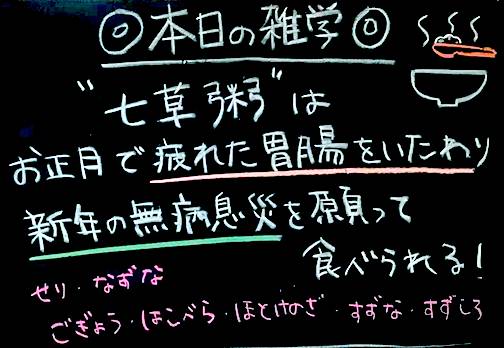 ◎本日の雑学◎
"七草粥"は
お正月で疲れた胃腸をいたわり
新年の無病息災を願って
食べられる!
せり・なずな
ごぎょう・はこべら・ほとけのざ・すずな・すずしろ